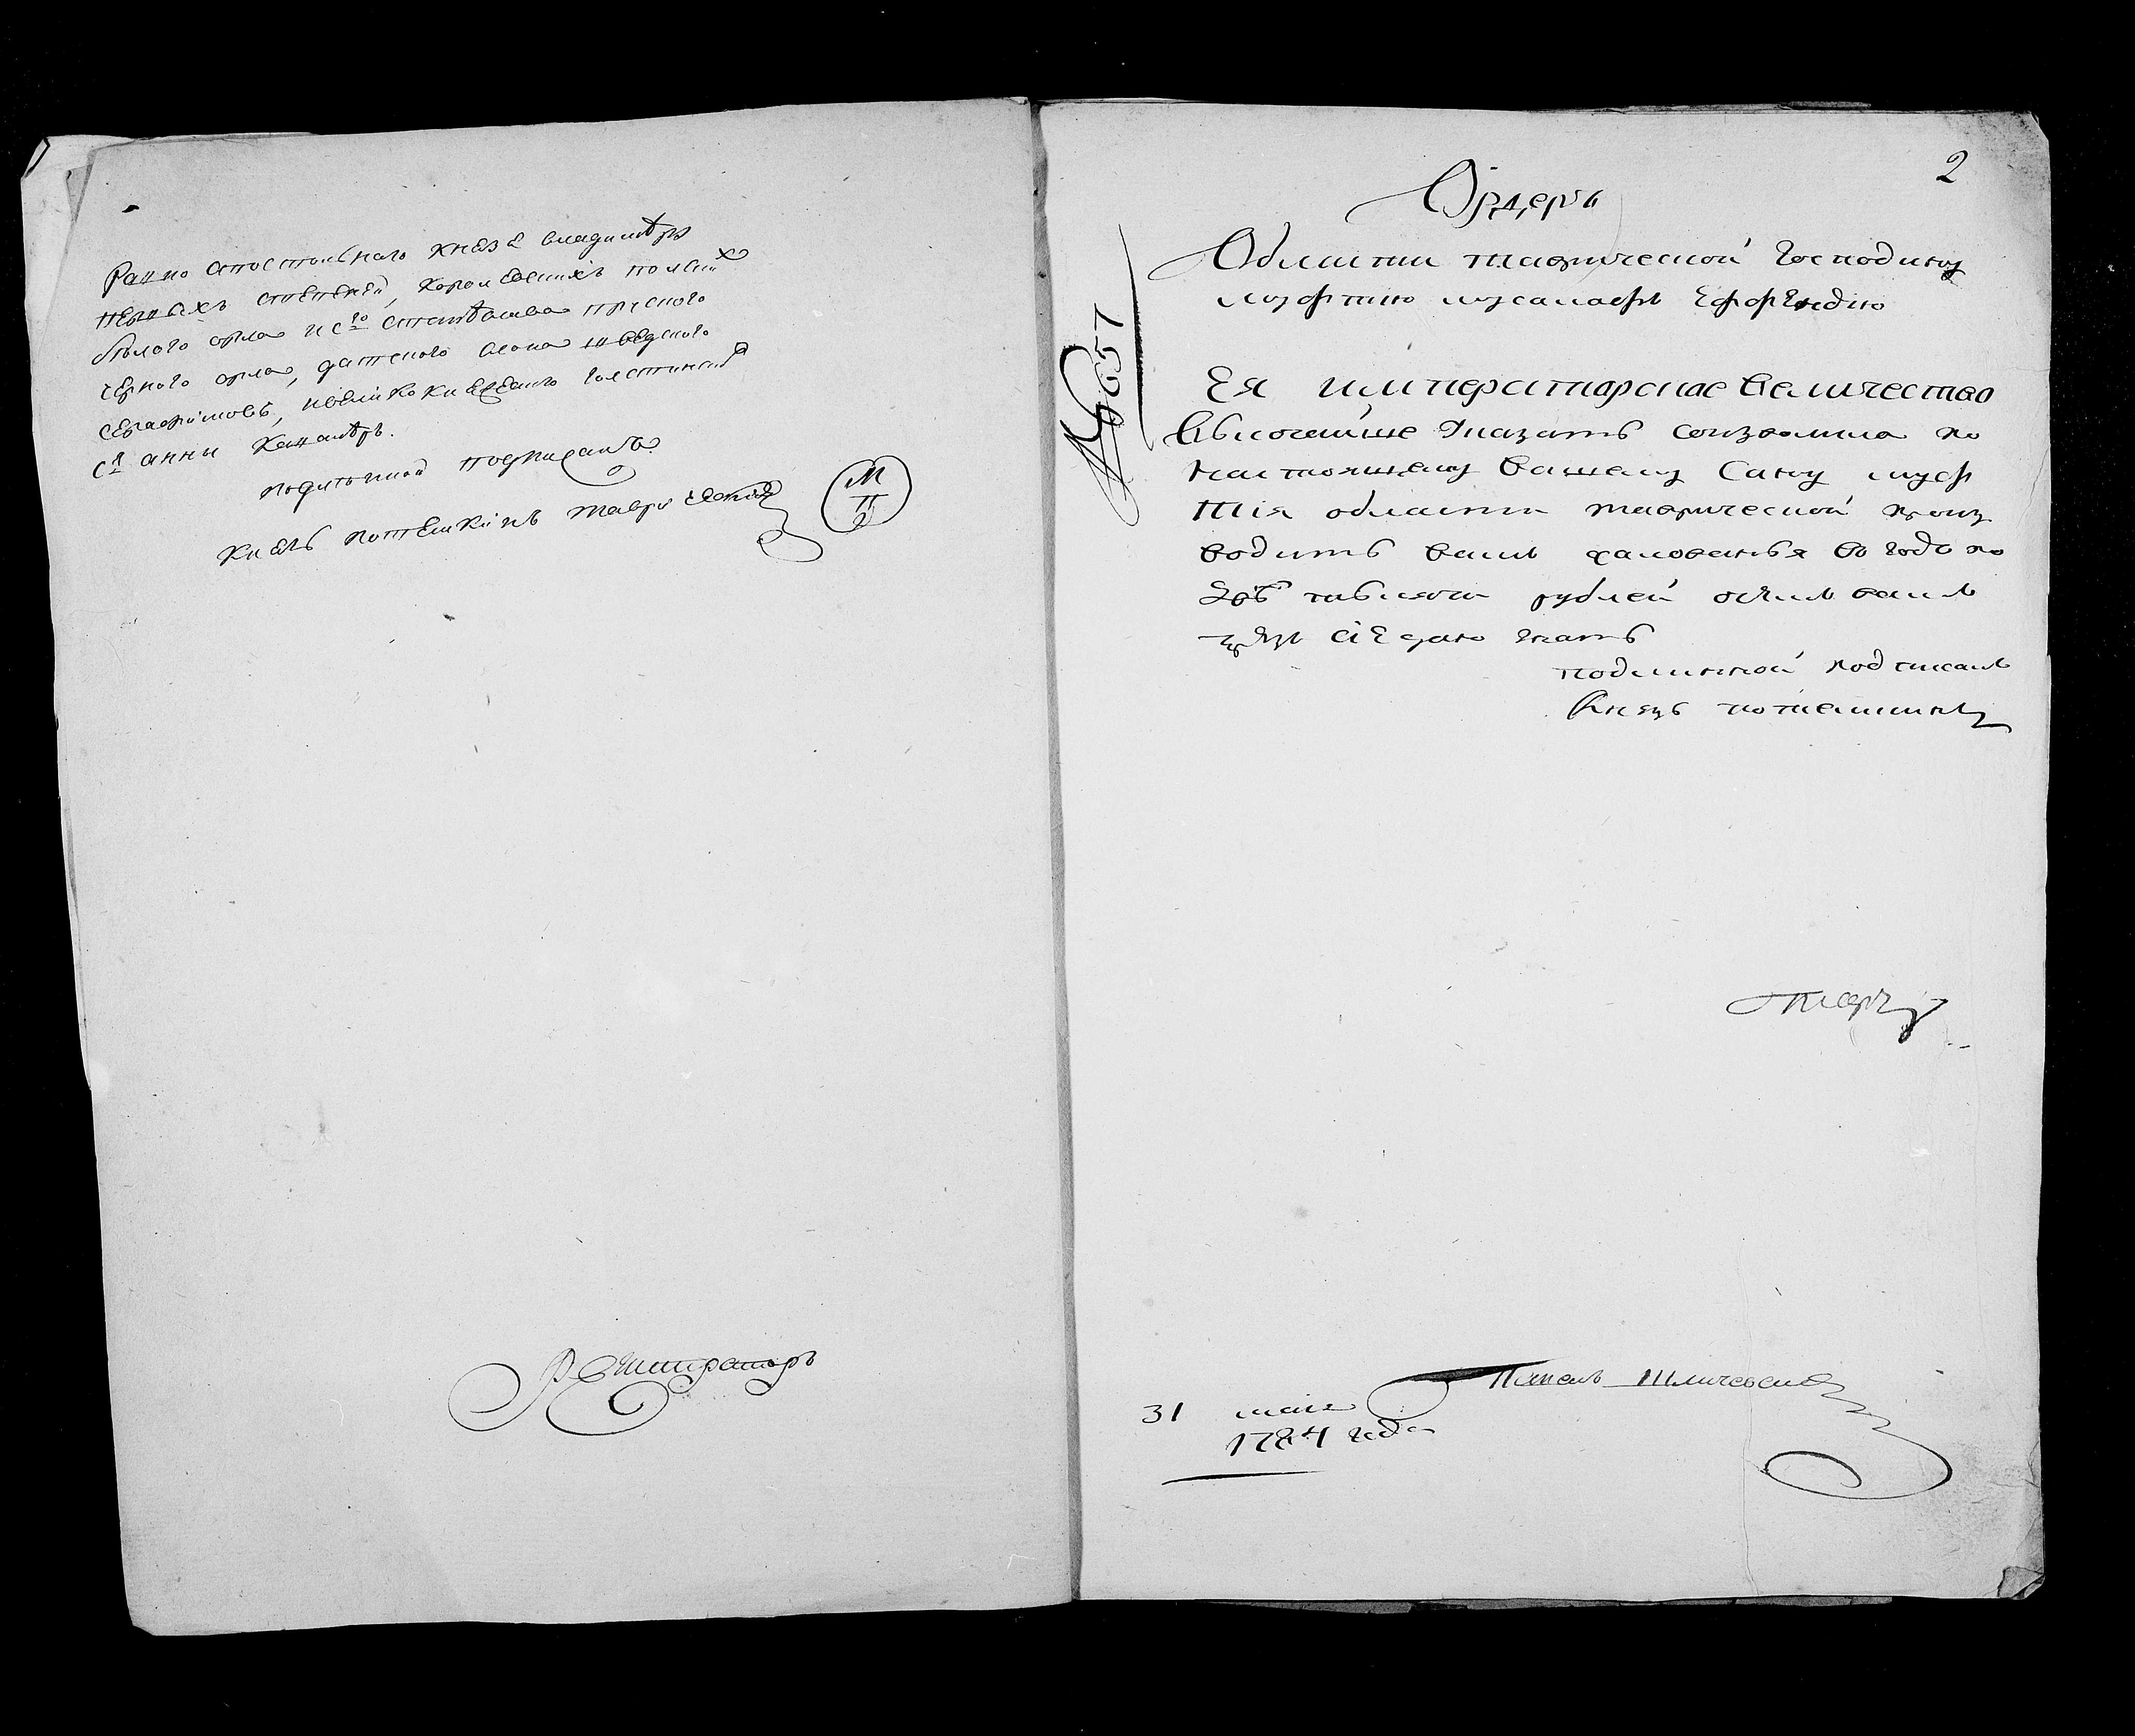 Равно апостольного князя владимѣра
первыхъ степеней, королевскихъ польских
бѣлого орла и с:го станислава прусского
черного орла, датского слона шведского
серафимовъ, и велико княжеского голстинской
с:я анны кавалѣръ.
подлинной подписалъ
князь потемкинъ таврической
М П
Регистраторъ
2
Ордеръ
Области таврической господину
муфтию мусалафъ ефѳендию
№ 657
Ея императорское величество
высочайше указать соизволила по
настоящему вашему сану муф
тия области таврической произ
водить вамъ жалованья въ годъ по
двѣ тысячи рублей о чемъ вамъ
чрезъ сіе даю знать
подлинной подписалъ
Князь потемкинъ
31 маия
1784 года